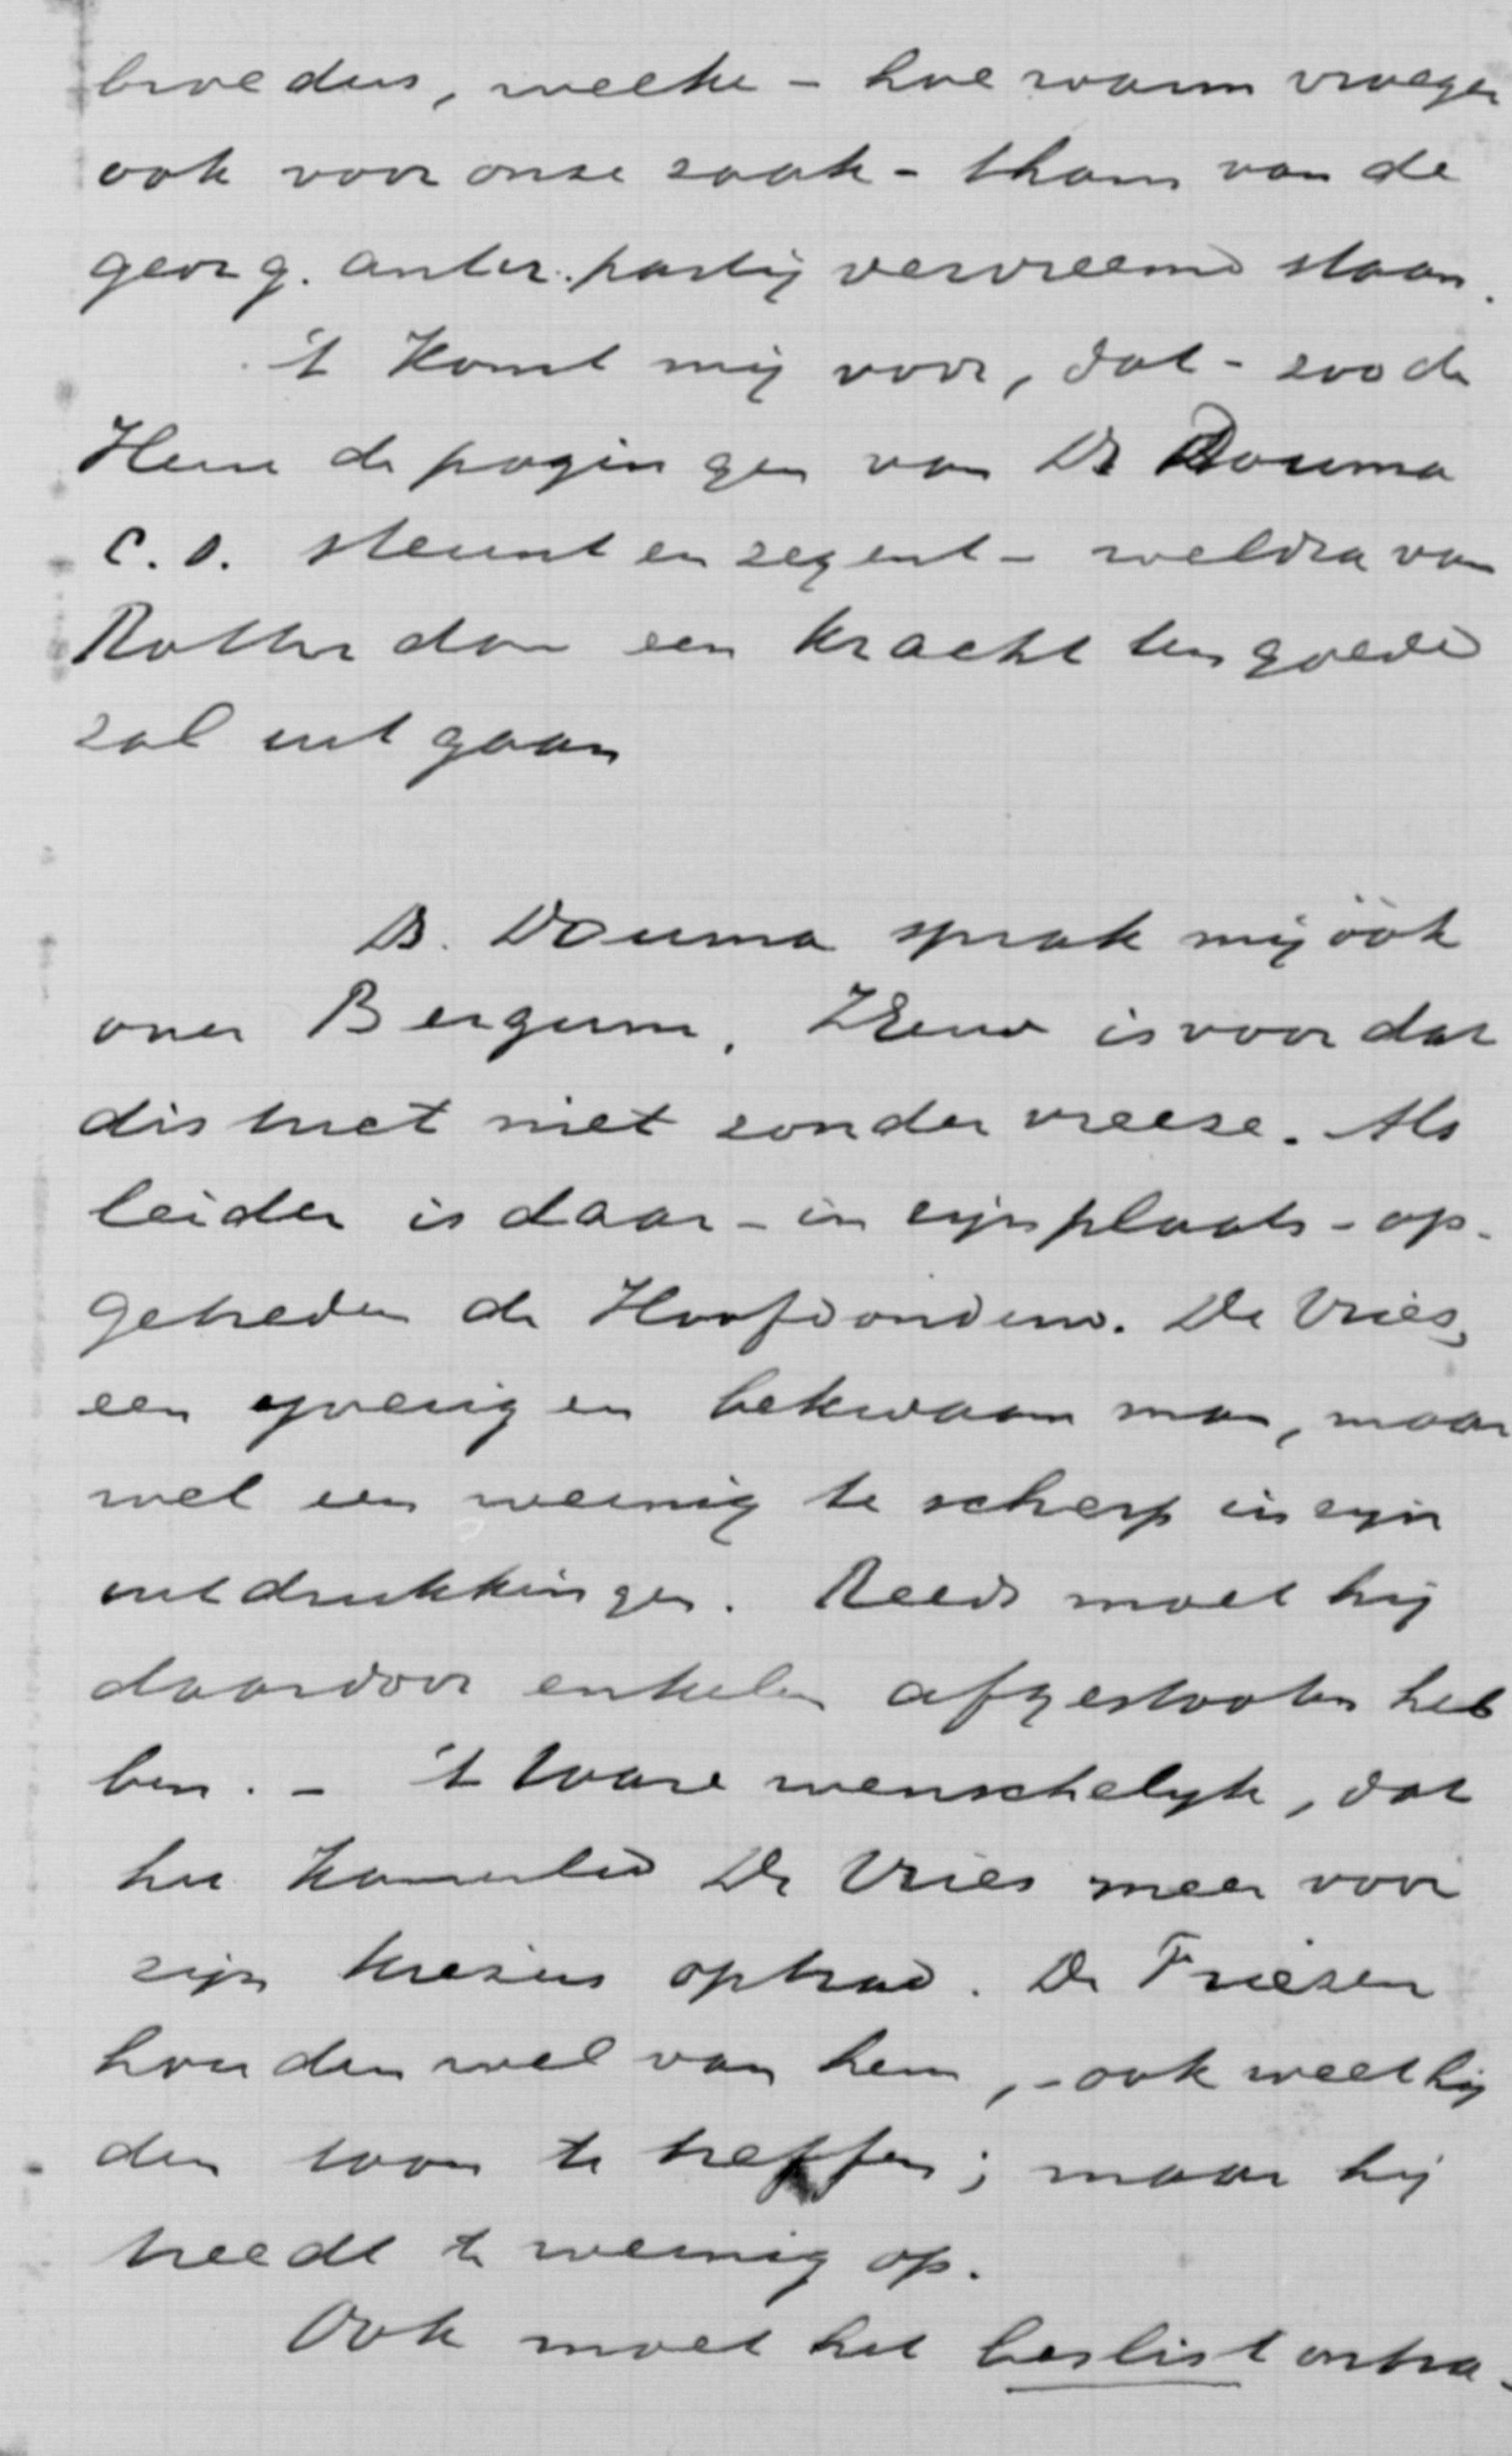 broeders, welke – hoe warm vroeger
ook voor onze zaak – thans van de
georg. antir. partij vervreemd staan.
't Komt mij voor, dat – zoo de
Heere de pogingen van Ds Douma
c.s. steunt en zegent – weldra van
Rotterdam een kracht ten goede
zal uitgaan
Ds. Douma sprak mij òòk
over Bergum. ZEerw is voor dat
district niet zonder vreeze. Als
leider is daar – in zijn plaats – op-
getreden de Hoofdonderw. De Vries,
een ijverig en bekwaam man, maar
wel een weinig te scherp in zijn
uitdrukkingen. Reeds moet hij
daardoor enkelen afgestooten heb
ben. – 't Ware wenschelijk, dat
het Kamerlid De Vries meer voor
zijn kiezers optrad. De Friezen
houden wel van hem, – ook weet hij
den toon te treffen; maar hij
treedt te weinig op.
Ook moet het beslist ontra-